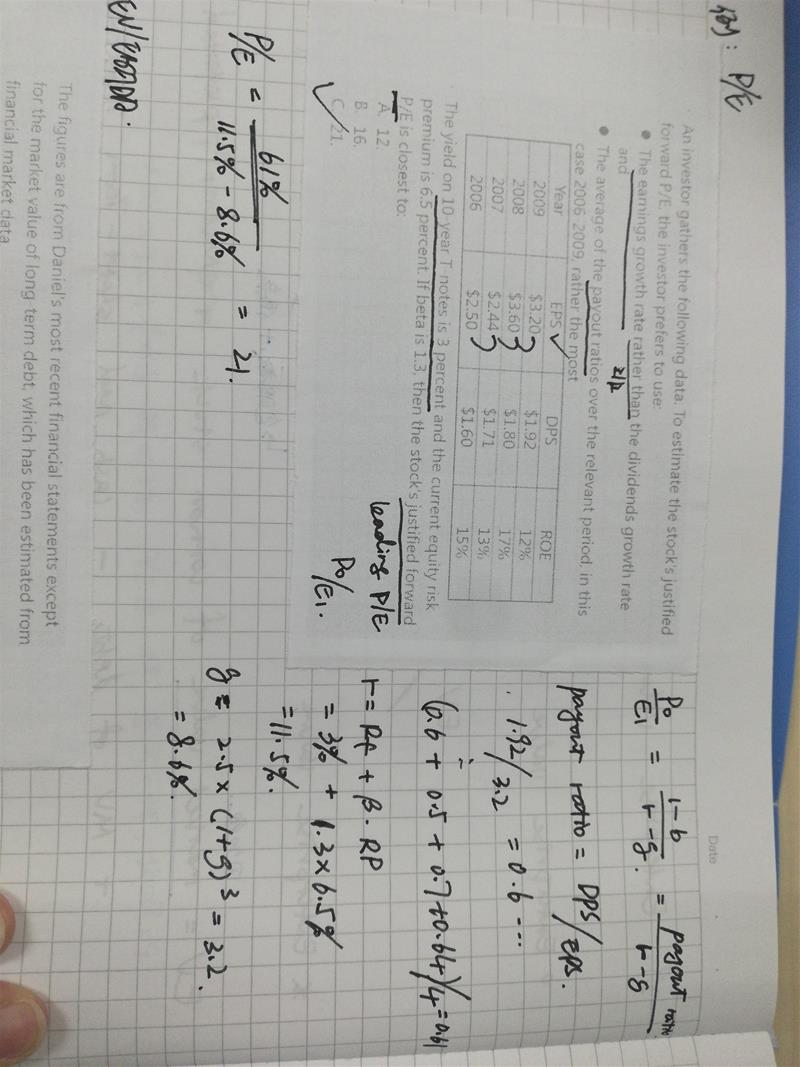 P/E
An investor gathers the following data. To estimate the stock's justified
forward P/E, the investor prefers to use:
● The earnings growth rate rather than the dividends growth rate
and
● The average of the payout ratios over the relevant period, in this
case 2006 2009, rather the most
Year EPS DPS ROE
2009 $3.20 $1.92 12%
2008 $3.60 $1.80 17%
2007 $2.44 $1.71 13%
2006 $2.50 $1.60 15%
The yield on 10 year T notes is 3 percent and the current equity risk
premium is 6.5 percent. If beta is 1.3, then the stock's justified forward
P/E is closest to:
A. 12.
B. 16.
C. 21.
leading P/E
P0/E1.
P/E = 61% / 11.5% - 8.6% = 21.
P0/E1 = 1-b / r-g. = payout ratio / r-g
payout ratio = DPS/EPS.
1.92/3.2 = 0.6 ...
(0.6 + 0.5 + 0.7 + 0.64)/4 = 0.61
r = Rf + β · RP
= 3% + 1.3 × 6.5%
= 11.5%.
g = 2.5 × (1+g)³ = 3.2.
= 8.6%.
The figures are from Daniel's most recent financial statements except
for the market value of long term debt, which has been estimated from
financial market data
Date